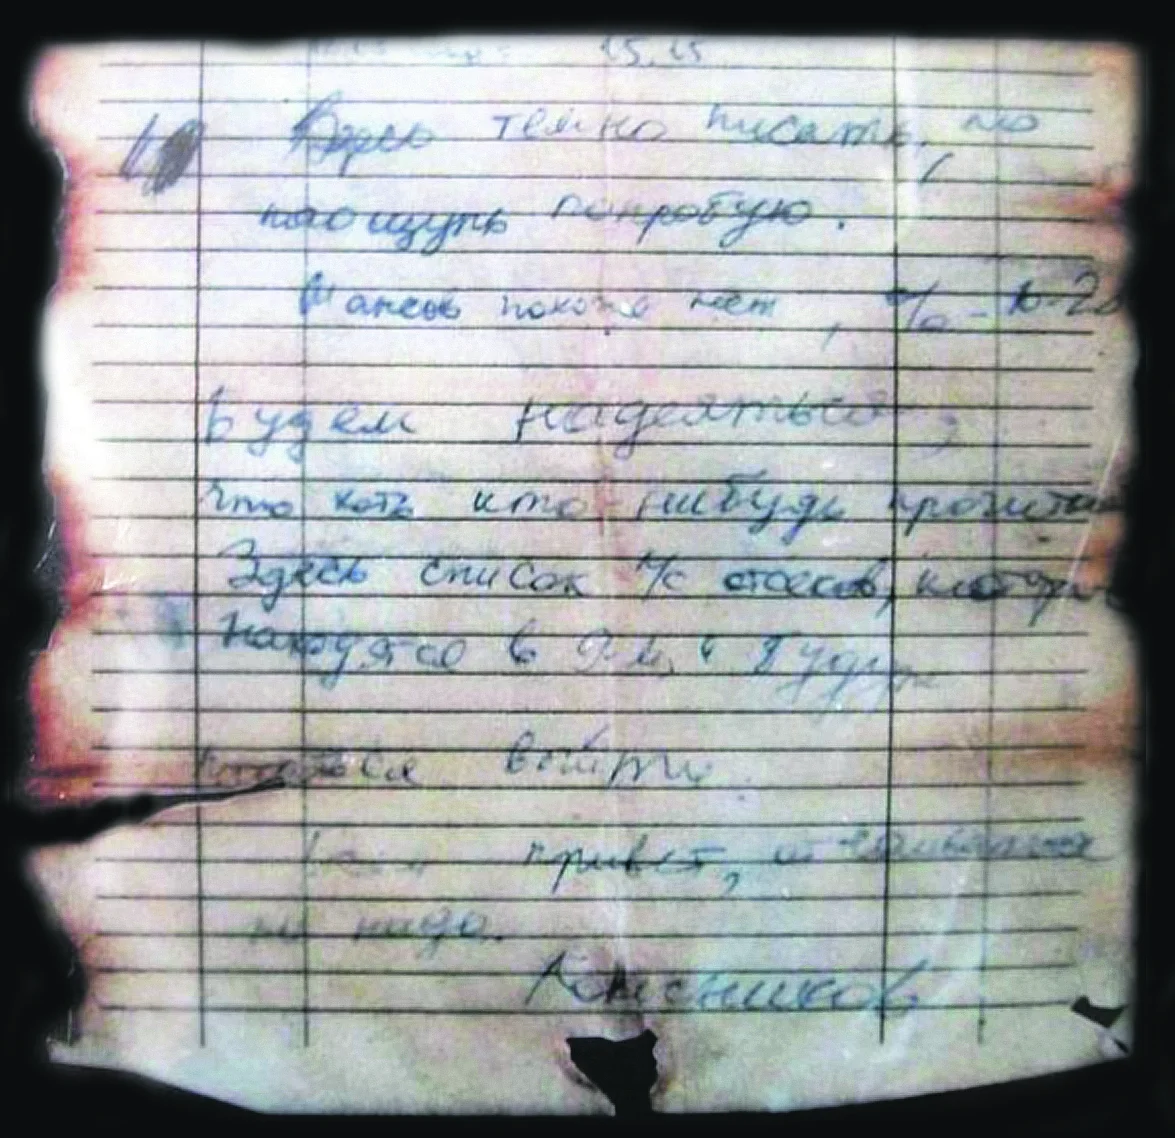 15.15
Здесь темно писать, но
наощупь попробую.
Шансов похоже нет, % - 10-20
Будем надеяться,
что хоть кто-нибудь прочитает
Здесь список л/с отсеков, которые
находятся в 9-м и будут
пытаться выйти.
Всем привет, отчаиваться
не надо.
Колесников